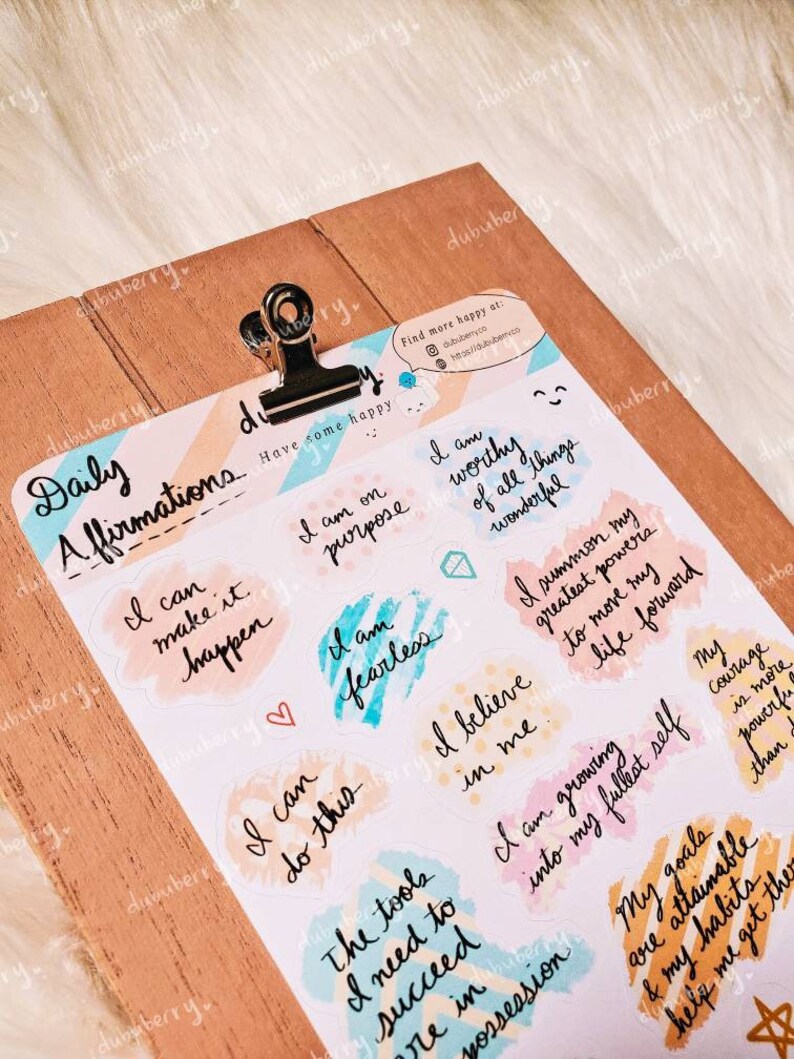 Find more happy at:
dububerryco
https://dububerry.co
Have some happy
Daily
Affirmations
I am on
purpose
I am
worthy
of all things
wonderful
I can
make it
happen
I am
fearless
I summon my
greatest powers
to move my
life forward
I believe
in me.
My
courage
is more
powerful
than
I can
do this
I am growing
into my fullest self
The tools
I need to
succeed
are in
possession
My goals
are attainable
& my habits
help me get there
dububerry.